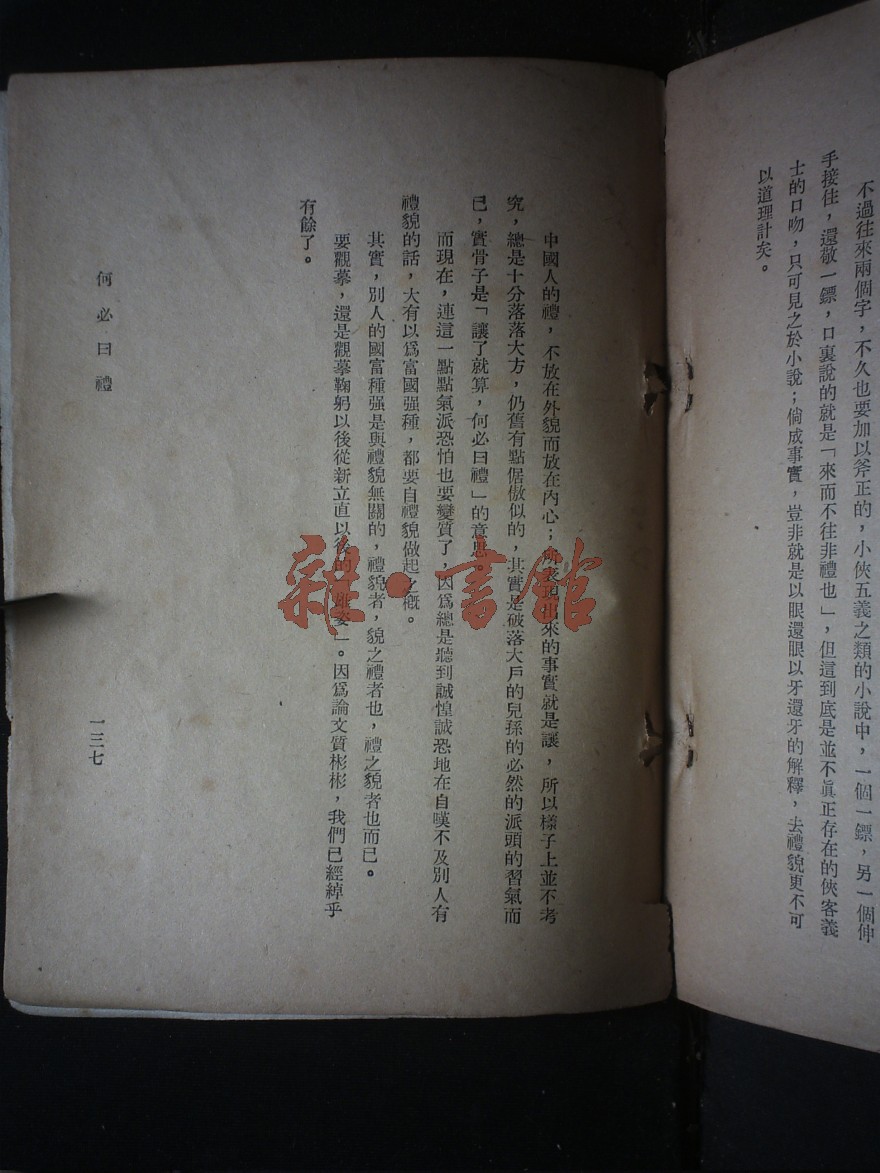 不過往來兩個字，不久也要加以斧正的，小俠五義之類的小說中，一個一鏢，另一個伸
手接住，還敬一鏢，口裏說的就是「來而不往非禮也」，但這到底是並不眞正存在的俠客義
士的口吻，只可見之於小說；倘成事實，豈非就是以眼還眼以牙還牙的解釋，去禮貌更不可
以道理計矣。
中國人的禮，不放在外貌而放在內心；所表出來的事實就是讓，所以樣子上並不考
究，總是十分落落大方，仍舊有點倨傲似的，其實是破落大戶的兒孫的必然的派頭的習氣而
已，實骨子是「讓了就算，何必曰禮」的意思。
而現在，連這一點點氣派恐怕也要變質了，因爲總是聽到誠惶誠恐地在自嘆不及別人有
禮貌的話，大有以爲富國强種，都要自禮貌做起之槪。
其實，別人的國富種强是與禮貌無關的，禮貌者，貌之禮者也，禮之貌者也而已。
要觀摹，還是觀摹鞠躬以後從新立直以後的「雄姿」。因爲論文質彬彬，我們已經綽乎
有餘了。
何必曰禮
一三七
雜·書館